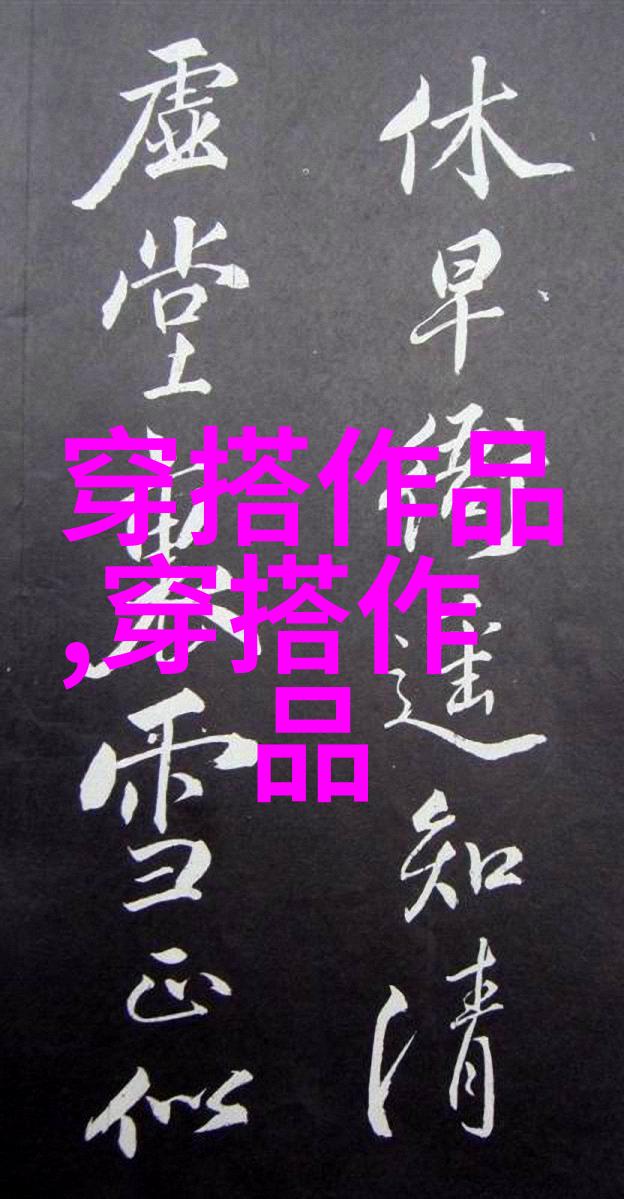 休早衙遥知清
虚堂雪正似
穿搭作品
,穿搭作
品